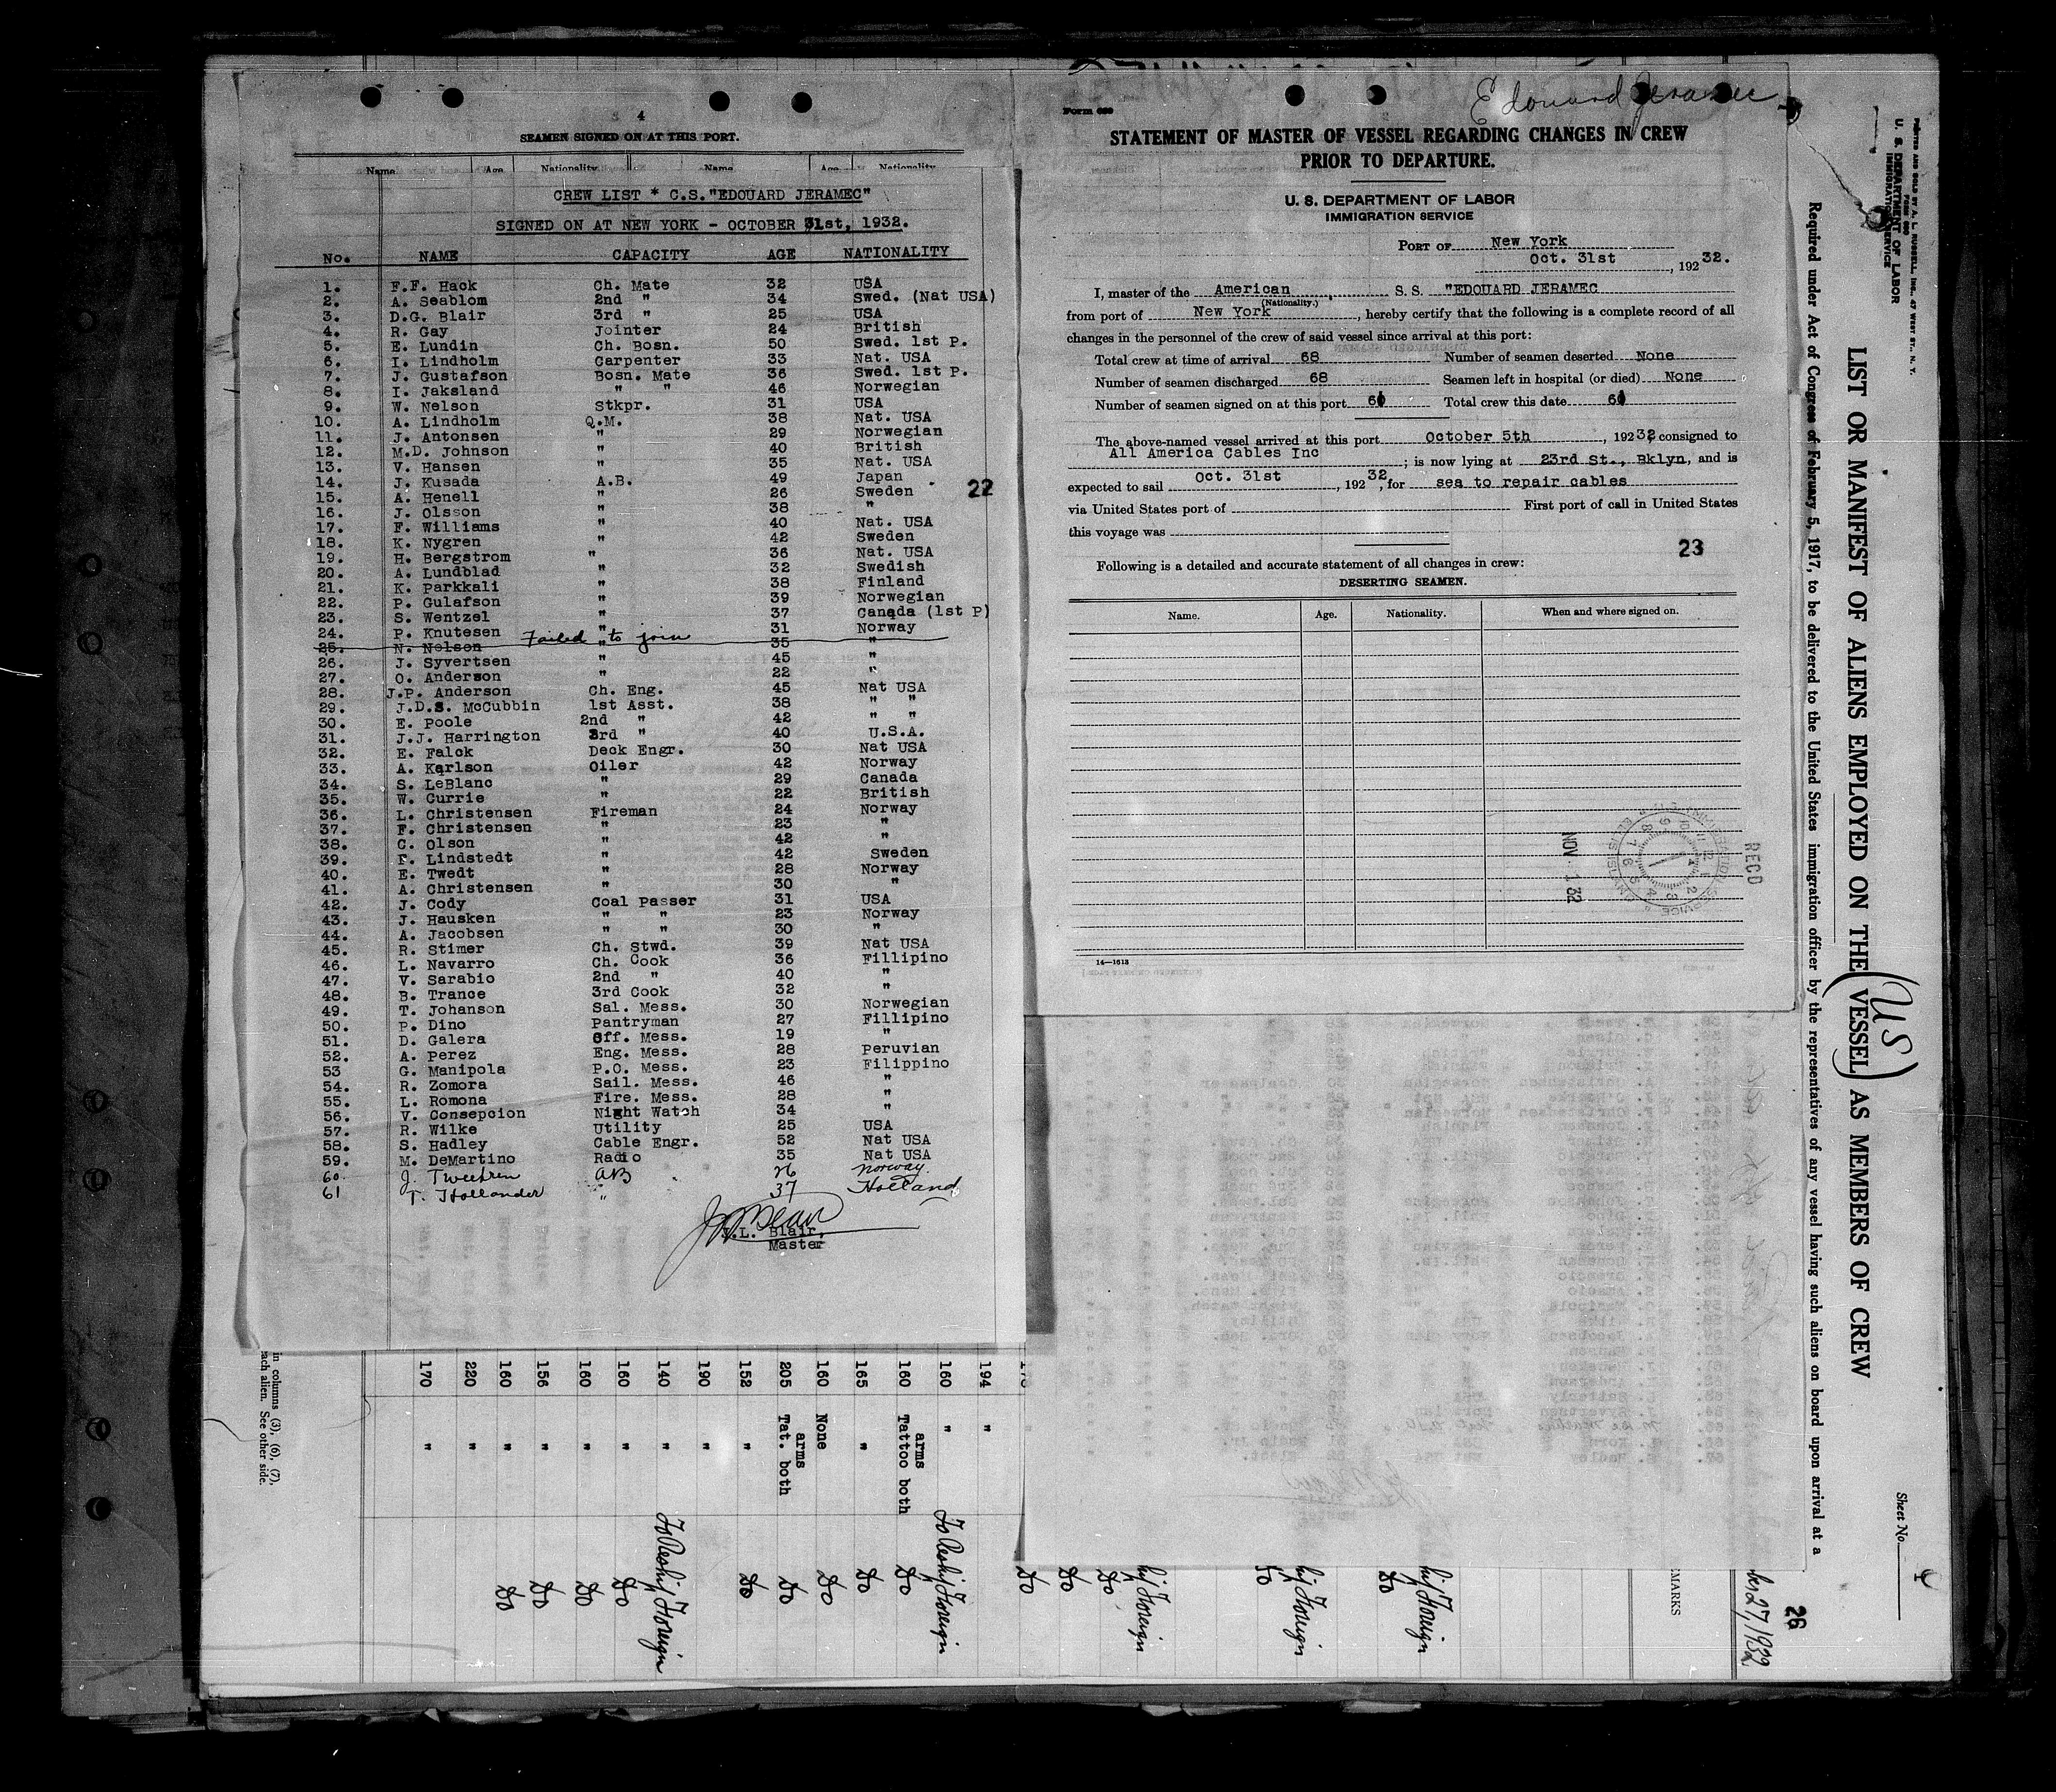 4
SEAMEN SIGNED ON AT THIS PORT.
Name. Age Nationality Name. Age Nationality
CREW LIST * C.S."EDOUARD JERAMEC"
SIGNED ON AT NEW YORK - OCTOBER 31st, 1932.
No. NAME CAPACITY AGE NATIONALITY
1. F.F. Hack Ch. Mate 32 USA
2. A. Seablom 2nd " 34 Swed. (Nat USA)
3. D.G. Blair 3rd " 25 USA
4. R. Gay Jointer 24 British
5. E. Lundin Ch. Bosn. 50 Swed. 1st P.
6. I. Lindholm Carpenter 33 Nat. USA
7. J. Gustafson Bosn. Mate 36 Swed. 1st P.
8. I. Jaksland " " 46 Norwegian
9. W. Nelson Stkpr. 31 USA
10. A. Lindholm Q.M. 38 Nat. USA
11. J. Antonsen " 29 Norwegian
12. M.D. Johnson " 40 British
13. V. Hansen " 35 Nat. USA
14. J. Kusada A.B. 49 Japan
15. A. Henell " 26 Sweden 22
16. J. Olsson " 38 "
17. F. Williams " 40 Nat. USA
18. K. Nygren " 42 Sweden
19. H. Bergstrom " 36 Nat. USA
20. A. Lundblad " 32 Swedish
21. K. Parkkali " 38 Finland
22. P. Gulafson " 39 Norwegian
23. S. Wentzel " 37 Canada (1st P)
24. P. Knutesen " 31 Norway
25. N. Nelson Failed to join " 35 "
26. J. Syvertsen " 45 "
27. O. Anderson " 22 "
28. J.P. Anderson Ch. Eng. 45 Nat USA
29. J.D.S. McCubbin 1st Asst. 38 " "
30. E. Poole 2nd " 42 " "
31. J.J. Harrington 3rd " 40 U.S.A.
32. E. Falck Deck Engr. 30 Nat USA
33. A. Karlson Oiler 42 Norway
34. S. LeBlanc " 29 Canada
35. W. Currie " 22 British
36. L. Christensen Fireman 24 Norway
37. F. Christensen " 23 "
38. C. Olson " 42 "
39. F. Lindstedt " 42 Sweden
40. E. Twedt " 28 Norway
41. A. Christensen " 30 "
42. J. Cody Coal Passer 31 USA
43. J. Hausken " " 23 Norway
44. A. Jacobsen " " 30 "
45. R. Stimer Ch. Stwd. 39 Nat USA
46. L. Navarro Ch. Cook 36 Fillipino
47. V. Sarabio 2nd " 40 "
48. B. Trance 3rd Cook 32 "
49. T. Johanson Sal. Mess. 30 Norwegian
50. P. Dino Pantryman 27 Fillipino
51. D. Galera Off. Mess. 19 "
52. A. Perez Eng. Mess. 28 Peruvian
53 G. Manipola P.O. Mess. 23 Filippino
54. R. Zomora Sail. Mess. 46 "
55. L. Romona Fire. Mess. 28 "
56. V. Consepcion Night Watch 34 "
57. R. Wilke Utility 25 USA
58. S. Hadley Cable Engr. 52 Nat USA
59. M. DeMartino Radio 35 Nat USA
60. AB 26 Norway.
61 T. Hollander " 37 Holland
J.L. Blair,
Master
Edouard Jeramec
Form 689
STATEMENT OF MASTER OF VESSEL REGARDING CHANGES IN CREW
PRIOR TO DEPARTURE.
U. S. DEPARTMENT OF LABOR
IMMIGRATION SERVICE
PORT OF New York
Oct. 31st, 192 32.
I, master of the American S. S. "EDOUARD JERAMEC
(Nationality.)
from port of New York, hereby certify that the following is a complete record of all
changes in the personnel of the crew of said vessel since arrival at this port:
Total crew at time of arrival 68 Number of seamen deserted None
Number of seamen discharged 68 Seamen left in hospital (or died) None
Number of seamen signed on at this port 60 Total crew this date 60
The above-named vessel arrived at this port October 5th, 192 32 consigned to
All America Cables Inc; is now lying at 23rd St., Bklyn, and is
expected to sail Oct. 31st, 192 32, for sea to repair cables
via United States port of First port of call in United States
this voyage was
23
Following is a detailed and accurate statement of all changes in crew:
DESERTING SEAMEN.
Name. Age. Nationality. When and where signed on.
RECD
NOV 1 32
14—1613
PRINTED AND SOLD BY A. L. RUSSELL, INC., 47 WEST ST., N. Y.
FORM 680
U. S. DEPARTMENT OF LABOR
IMMIGRATION SERVICE
LIST OR MANIFEST OF ALIENS EMPLOYED ON THE (VESSEL) AS MEMBERS OF CREW
(US)
Required under Act of Congress of February 5, 1917, to be delivered to the United States immigration officer by the representatives of any vessel having such aliens on board upon arrival at a
Sheet No. 4
26
ber 27, 1932
EMARKS
194 "
160 " To Reship Foreign
160 Tattoo both arms Do
165 " Do
160 None Do
205 Tat. both arms Do
152 " Do
190 "
140 " To Reship Foreign
160 " Do
160 " Do
156 " Do
160 " Do
220 "
170 "
hip Foreign
hip Foreign
hip Foreign
Do
Do
Do
Do
Do
in columns (3), (6), (7),
each alien. See other side.